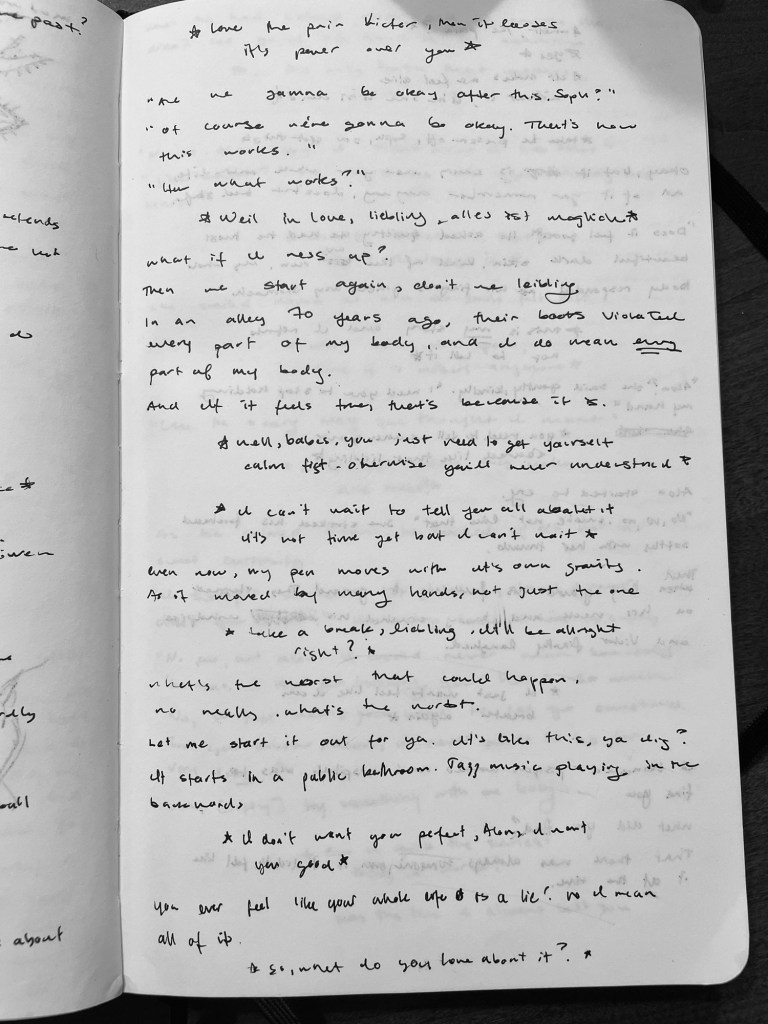 past?
☆ Love the pain Victor, then it looses
it's power over you ☆
"Are we gamna be okay after this. Soph?"
"Of course we're gonna be okay. That's how
this works."
"How what works?"
☆ Weil in love, liebling, alles ist moglich ☆
what if I mess up?
Then we start again, don't we leibling
In an alley 70 years ago, their boots violated
every part of my body, and I do mean every
part of my body.
And If it feels true, that's because it is.
☆ well, babies, you just need to get yourself
calm fist. otherwise you'll never understand ☆
☆ I can't wait to tell you all about it
it's not time yet but I can't wait ☆
even now, my pen moves with it's own gravity.
As if moved by many hands, not just the one
☆ take a break, liebling, it'll be allright
right? ☆
what's the worst that could happen,
no really. what's the worst.
Let me start it out for ya. It's like this, ya dig?
It starts in a public bathroom. Jazz music playing in the
backwards
☆ I don't want you perfect, I want
you good ☆
you ever feel like your whole life is a lie? no I mean
all of it.
☆ so, what do you love about it? ☆
do
about